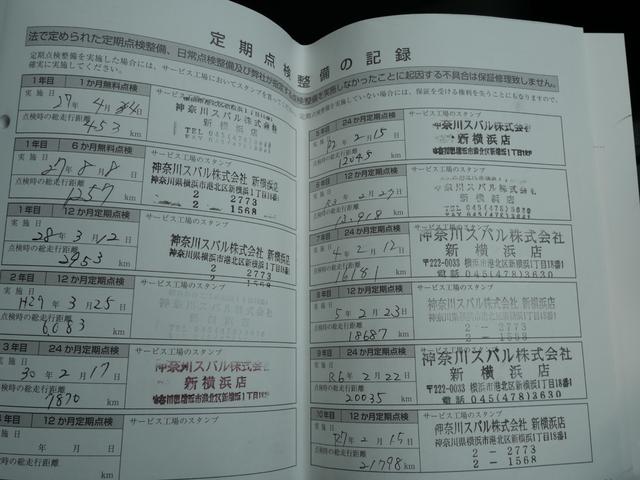 定期点検整備の記録
法で定められた定期点検整備、日常点検整備及び弊社が指定する点検整備を実施しなかったことに起因する不具合は保証修理致しません。
定期点検整備を実施した場合には、サービス工場においてスタンプを
確実に実施してください。
点検整備を実施していない場合には、保証を受ける権利を失うことにもなりますので、
1年目 1か月無料点検
サービス工場のスタンプ
実施日
27年4月
神奈川スバル株式会社
新横浜店
点検時の総走行距離
453 km
1年目 6か月無料点検
サービス工場のスタンプ
実施日
27年8月8日
神奈川スバル株式会社 新横浜店
神奈川県横浜市港北区新横浜1丁目18番1
2-2773
2-1568
点検時の総走行距離
1257 km
1年目 12か月定期点検
サービス工場のスタンプ
実施日
28年3月12日
神奈川スバル株式会社 新横浜店
神奈川県横浜市港北区新横浜1丁目18番1
2-2773
2-1568
点検時の総走行距離
2953 km
2年目 12か月定期点検
サービス工場のスタンプ
実施日
H29年3月25日
点検時の総走行距離
6683 km
3年目 24か月定期点検
サービス工場のスタンプ
実施日
30年2月17日
神奈川スバル株式会社
新横浜店
点検時の総走行距離
7870 km
12か月定期点検
サービス工場のスタンプ
実施日
年 月 日
点検時の総走行距離
km
5年目 24か月定期点検
サービス工場のスタンプ
実施日
年2月15日
神奈川スバル株式会社
新横浜店
点検時の総走行距離
12045 km
12か月定期点検
サービス工場のスタンプ
実施日
年2月27日
神奈川スバル株式会社
新横浜店
点検時の総走行距離
12918 km
7年目 24か月定期点検
サービス工場のスタンプ
実施日
4年2月12日
神奈川スバル株式会社
新横浜店
〒222-0033 横浜市港北区新横浜1丁目18番1
電話045(478)3630
点検時の総走行距離
16181 km
8年目 12か月定期点検
サービス工場のスタンプ
実施日
5年2月23日
神奈川スバル株式会社 新横浜店
神奈川県横浜市港北区新横浜1丁目18番1
2-2773
2-1568
点検時の総走行距離
18687 km
9年目 24か月定期点検
サービス工場のスタンプ
実施日
R6年2月22日
神奈川スバル株式会社
新横浜店
〒222-0033 横浜市港北区新横浜1丁目18番1
電話045(478)3630
点検時の総走行距離
20035 km
10年目 12か月定期点検
サービス工場のスタンプ
実施日
R7年2月15日
神奈川スバル株式会社 新横浜店
神奈川県横浜市港北区新横浜1丁目18番1
2-2773
2-1568
点検時の総走行距離
21798 km